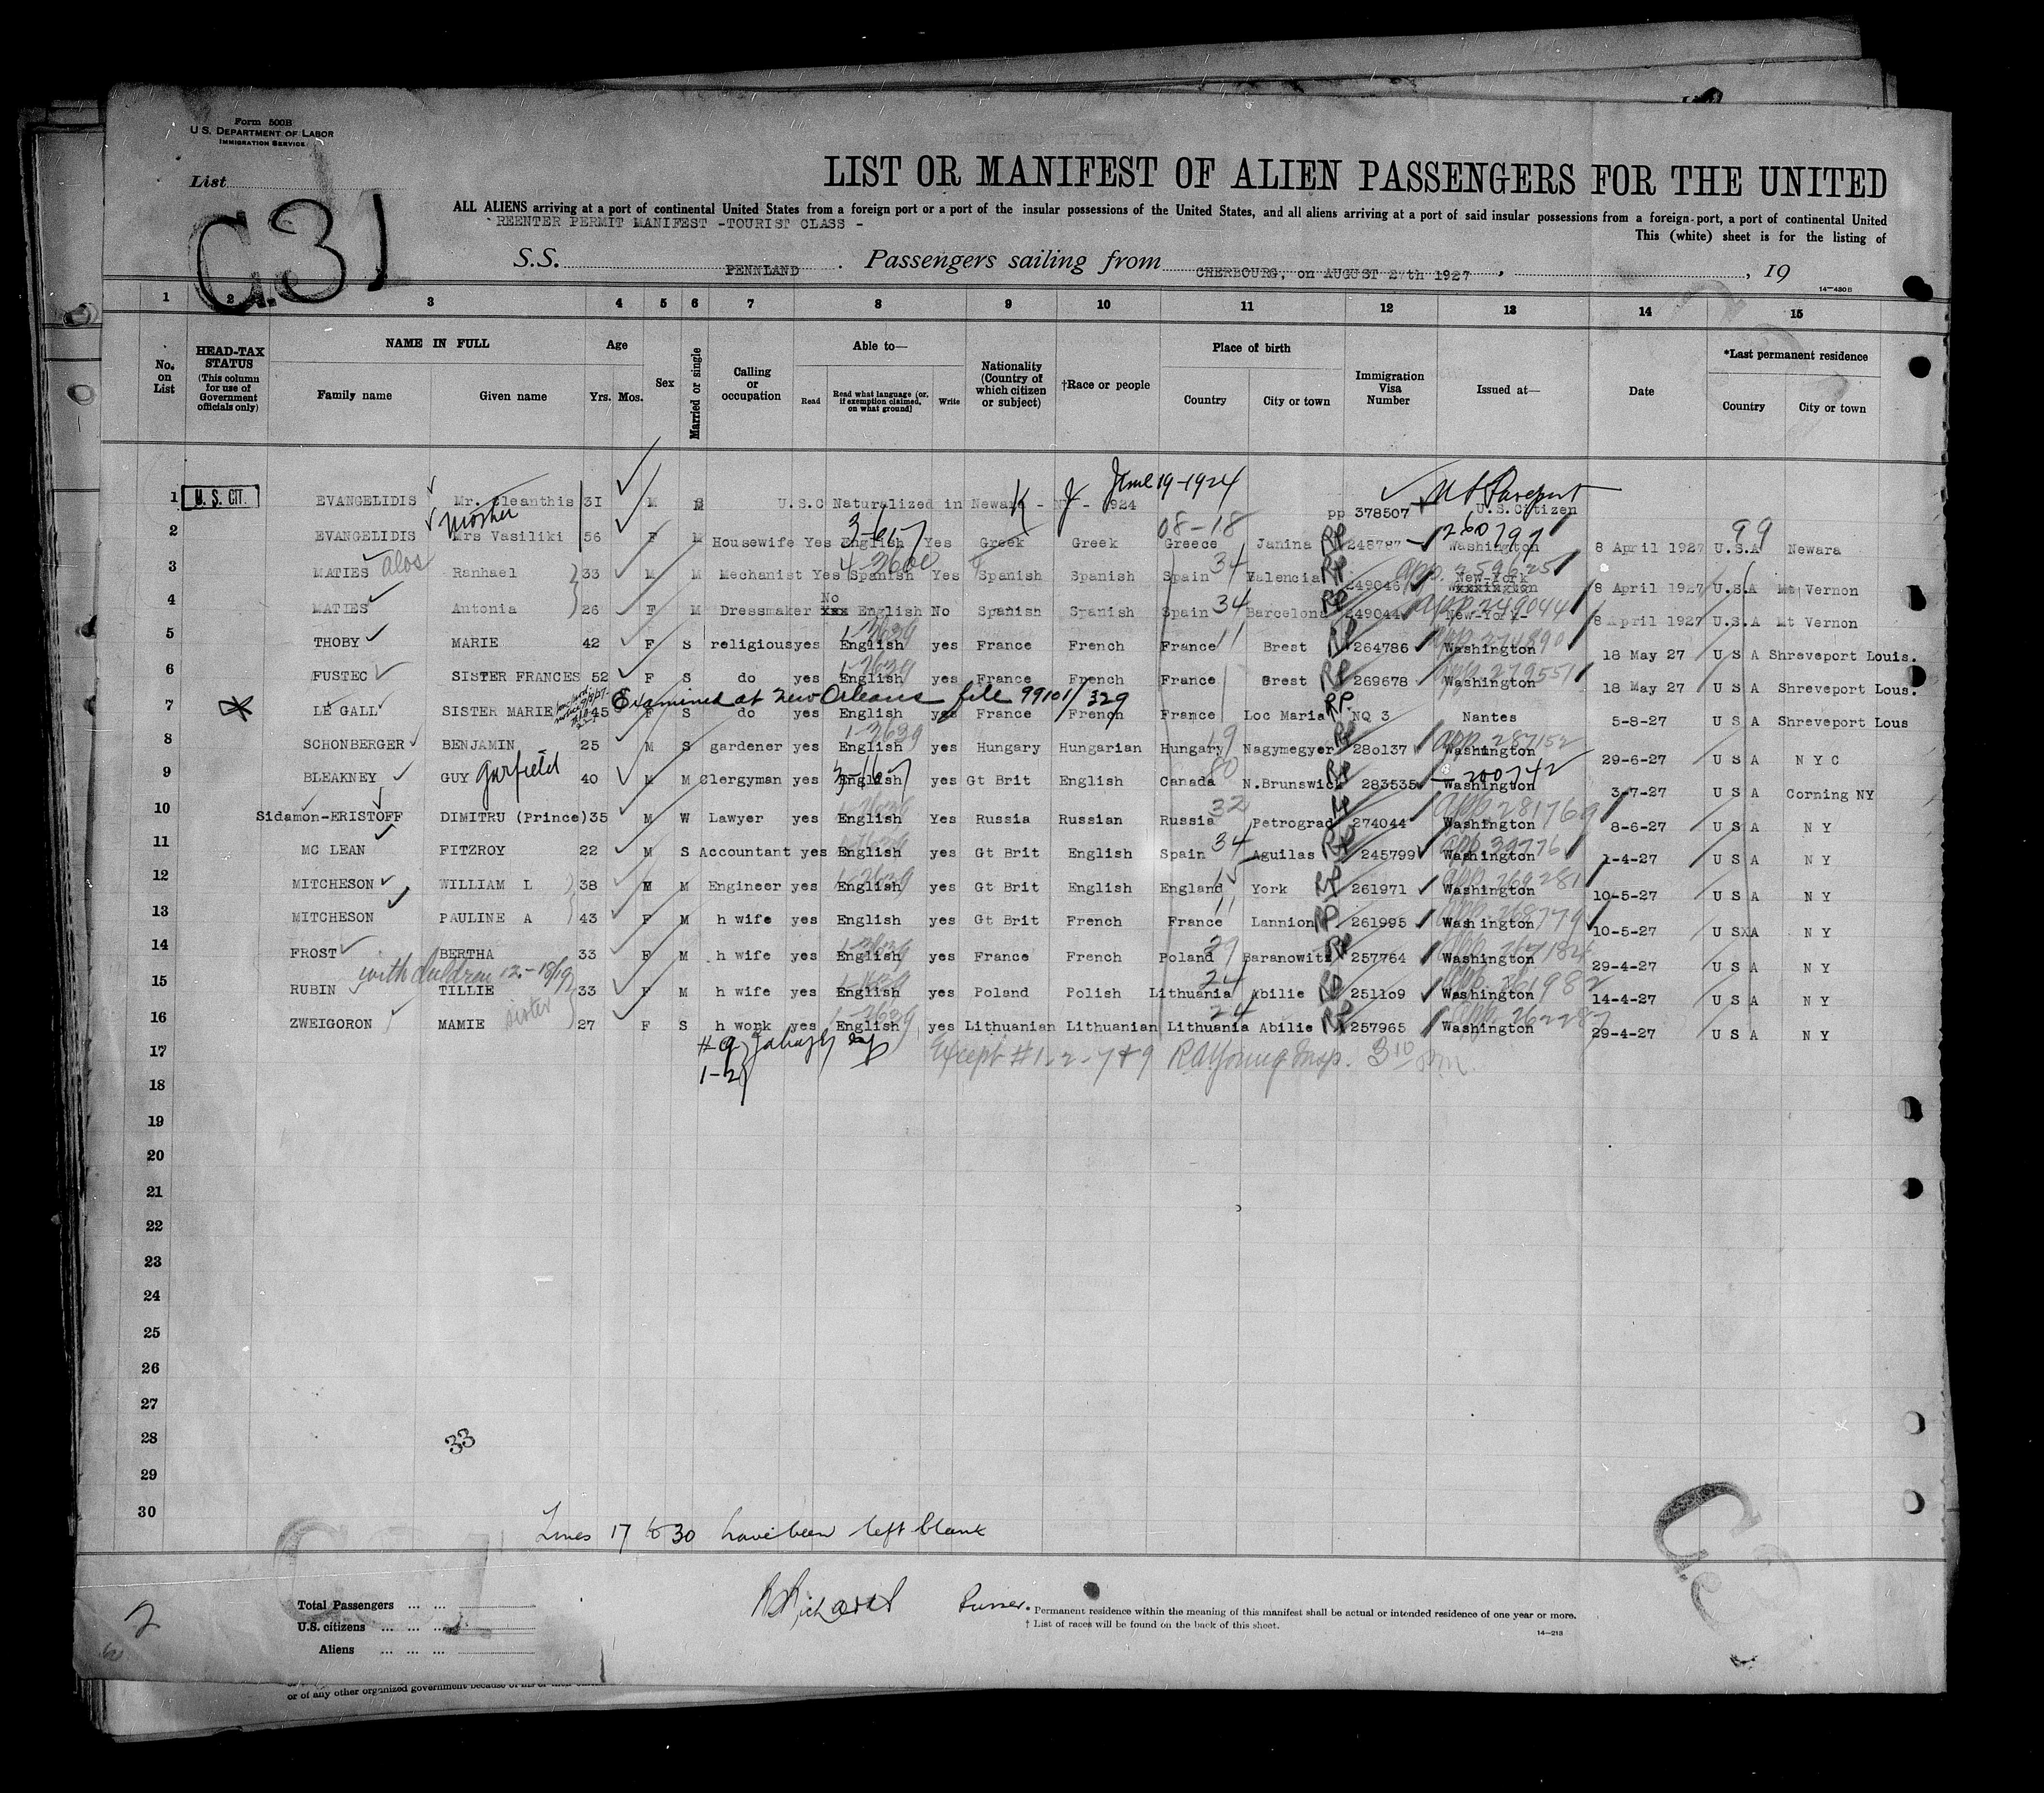 Form 500B
U.S. DEPARTMENT OF LABOR
IMMIGRATION SERVICE
List
C.31
LIST OR MANIFEST OF ALIEN PASSENGERS FOR THE UNITED
ALL ALIENS arriving at a port of continental United States from a foreign port or a port of the insular possessions of the United States, and all aliens arriving at a port of said insular possessions from a foreign port, a port of continental United
REENTER PERMIT MANIFEST -TOURIST CLASS -
This (white) sheet is for the listing of
S.S. PENNLAND. Passengers sailing from CHERBOURG, on AUGUST 27th 1927, , 19
14-430B
1 2 3 4 5 6 7 8 9 10 11 12 13 14 15
No. on List
HEAD-TAX STATUS (This column for use of Government officials only)
NAME IN FULL
Family name Given name
Age
Yrs. Mos.
Sex
Married or single
Calling or occupation
Able to—
Read
Read what language (or, if exemption claimed, on what ground)
Write
Nationality (Country of which citizen or subject)
†Race or people
Place of birth
Country City or town
Immigration Visa Number
Issued at—
Date
*Last permanent residence
Country City or town
June 19-1924
1 U. S. CIT. EVANGELIDIS Mr. Cleanthis 31 M S U.S.C Naturalized in Newark - NJ - 1924 pp 378507 US Passport U.S.Citizen
mother 3-617 08-18 260797 99
2 EVANGELIDIS Mrs Vasiliki 56 F M Housewife Yes English Yes Greek Greek Greece Janina RP 248787 Washington 8 April 1927 U.S.A Newara
3 MATIES alos Ranhael 33 M M Mechanist Yes Spanish Yes Spanish Spanish Spain 34 Valencia RP 249046 app. 259625 New-York 8 April 1927 U.S.A Mt Vernon
4 MATIES Antonia 26 F M Dressmaker No xxx English No Spanish Spanish Spain 34 Barcelona RP 249044 app. 249044 New-York- 8 April 1927 U.S.A Mt Vernon
5 THOBY MARIE 42 F S religious yes English yes France French France 11 Brest RP 264786 app. 274890 Washington 18 May 27 U S A Shreveport Louis.
6 FUSTEC SISTER FRANCES 52 F S do yes English yes France French France Brest RP 269678 app. 279551 Washington 18 May 27 U S A Shreveport Lous.
Examined at New Orleans file 99101/329
7 LE GALL SISTER MARIE 45 F S do yes English yes France French France Loc Maria RP. NQ 3 Nantes 5-8-27 U S A Shreveport Lous
8 SCHONBERGER BENJAMIN 25 M S gardener yes English yes Hungary Hungarian Hungary 19 Nagymegyer RP 280137 app. 287152 Washington 29-6-27 U S A N Y C
9 BLEAKNEY GUY Garfield 40 M M Clergyman yes English yes Gt Brit English Canada 80 N.Brunswick RP 283535 200742 Washington 3-7-27 U S A Corning NY
10 Sidamon-ERISTOFF DIMITRU (Prince) 35 M W Lawyer yes English Yes Russia Russian Russia 32 Petrograd RP 274044 app. 281769 Washington 8-6-27 U S A N Y
11 MC LEAN FITZROY 22 M S Accountant yes English yes Gt Brit English Spain 34 Aguilas RP 245799 app. 39776 Washington 1-4-27 U S A N Y
12 MITCHESON WILLIAM L 38 M M Engineer yes English yes Gt Brit English England 15 York RP 261971 app. 269281 Washington 10-5-27 U S A N Y
13 MITCHESON PAULINE A 43 F M h wife yes English yes Gt Brit French France 11 Lannion RP 261995 app. 268779 Washington 10-5-27 U SxA N Y
14 FROST BERTHA 33 F M h wife yes English yes France French Poland 29 Baranowitz RP 257764 app. 267184 Washington 29-4-27 U S A N Y
with children 12-18/19
15 RUBIN TILLIE 33 F M h wife yes English yes Poland Polish Lithuania 24 Abilie RP 251109 app. 261982 Washington 14-4-27 U S A N Y
16 ZWEIGORON MAMIE sister 27 F S h work yes English yes Lithuanian Lithuanian Lithuania 24 Abilie RP 257965 app. 262287 Washington 29-4-27 U S A N Y
17 #9 Except #1-2-7+9 RA Young Insp. 3 10 pm.
1-2
18
19
20
21
22
23
24
25
26
27
28
33
29
30
Lines 17 to 30 have been left blank
Total Passengers
U.S. citizens
Aliens
2
Richards Purser.
* Permanent residence within the meaning of this manifest shall be actual or intended residence of one year or more.
† List of races will be found on the back of this sheet.
14-213
or of any other organized government because of his or their